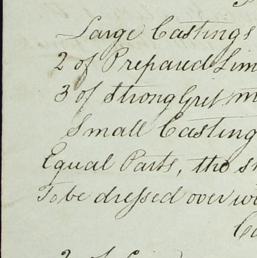 Large Castings
2 of Prepared Lim
3 of Strong Gret m
Small Casting
Equal Parts, the s
To be dressed over wi
2 of